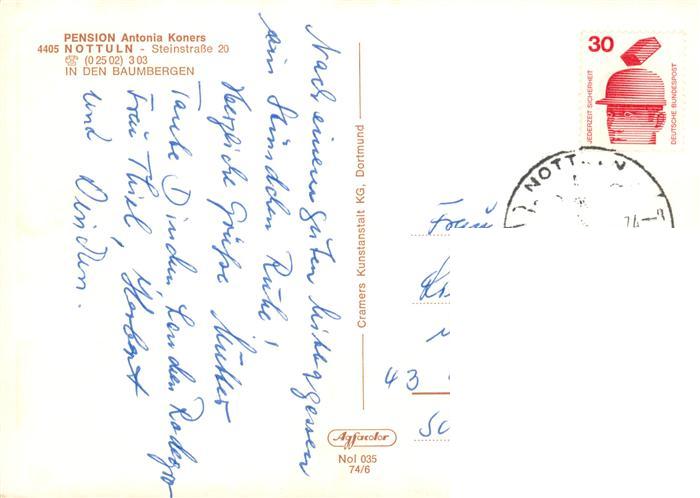 PENSION Antonia Koners
4405 NOTTULN - Steinstraße 20
☎ (0 25 02) 3 03
IN DEN BAUMBERGEN
Nach einem guten Mittagessen
ein Stündchen Ruhe!
Herzliche Grüße Mutter
Tante Dinchen
Frau Thiel, Herbert
und
Cramers Kunstanstalt KG, Dortmund
Agfacolor
Nol 035
74/6
30
JEDERZEIT SICHERHEIT
DEUTSCHE BUNDESPOST
NOTT
Frau
43